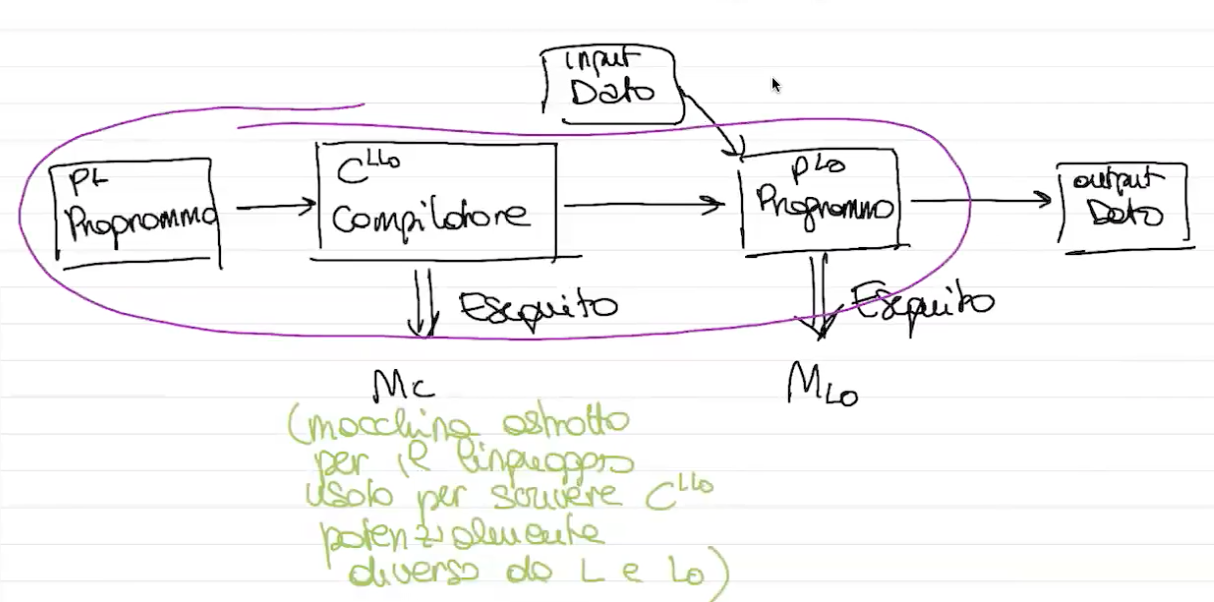 input
Dato
PL
Programma
C^LLo
Compilatore
PLo
Programma
output
Dato
Eseguito
Eseguito
Mc
MLo
(macchina astratta
per il linguaggio
usato per scrivere C^LLo
potenzialmente
diverso da L e Lo)